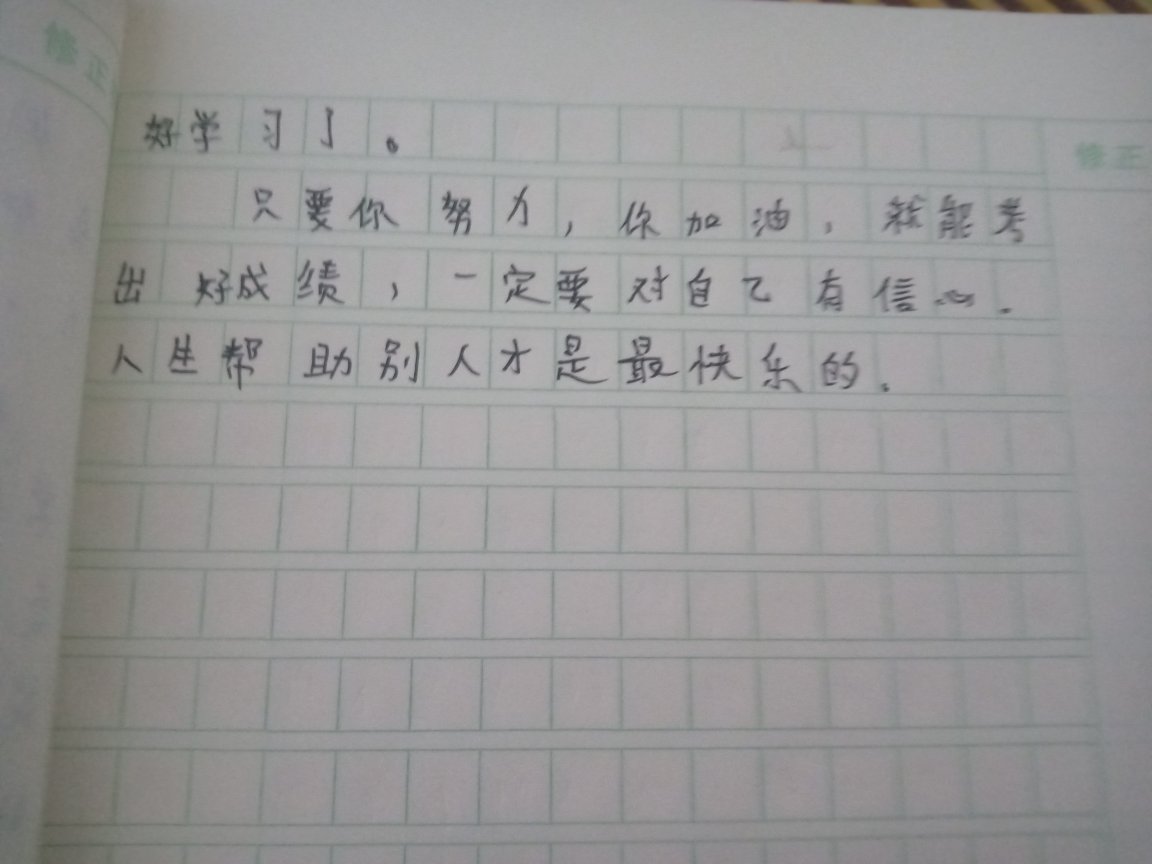 修正
好学习了。
修正
只要你努力,你加油,就能考
出好成绩,一定要对自己有信心.
人生帮助别人才是最快乐的.